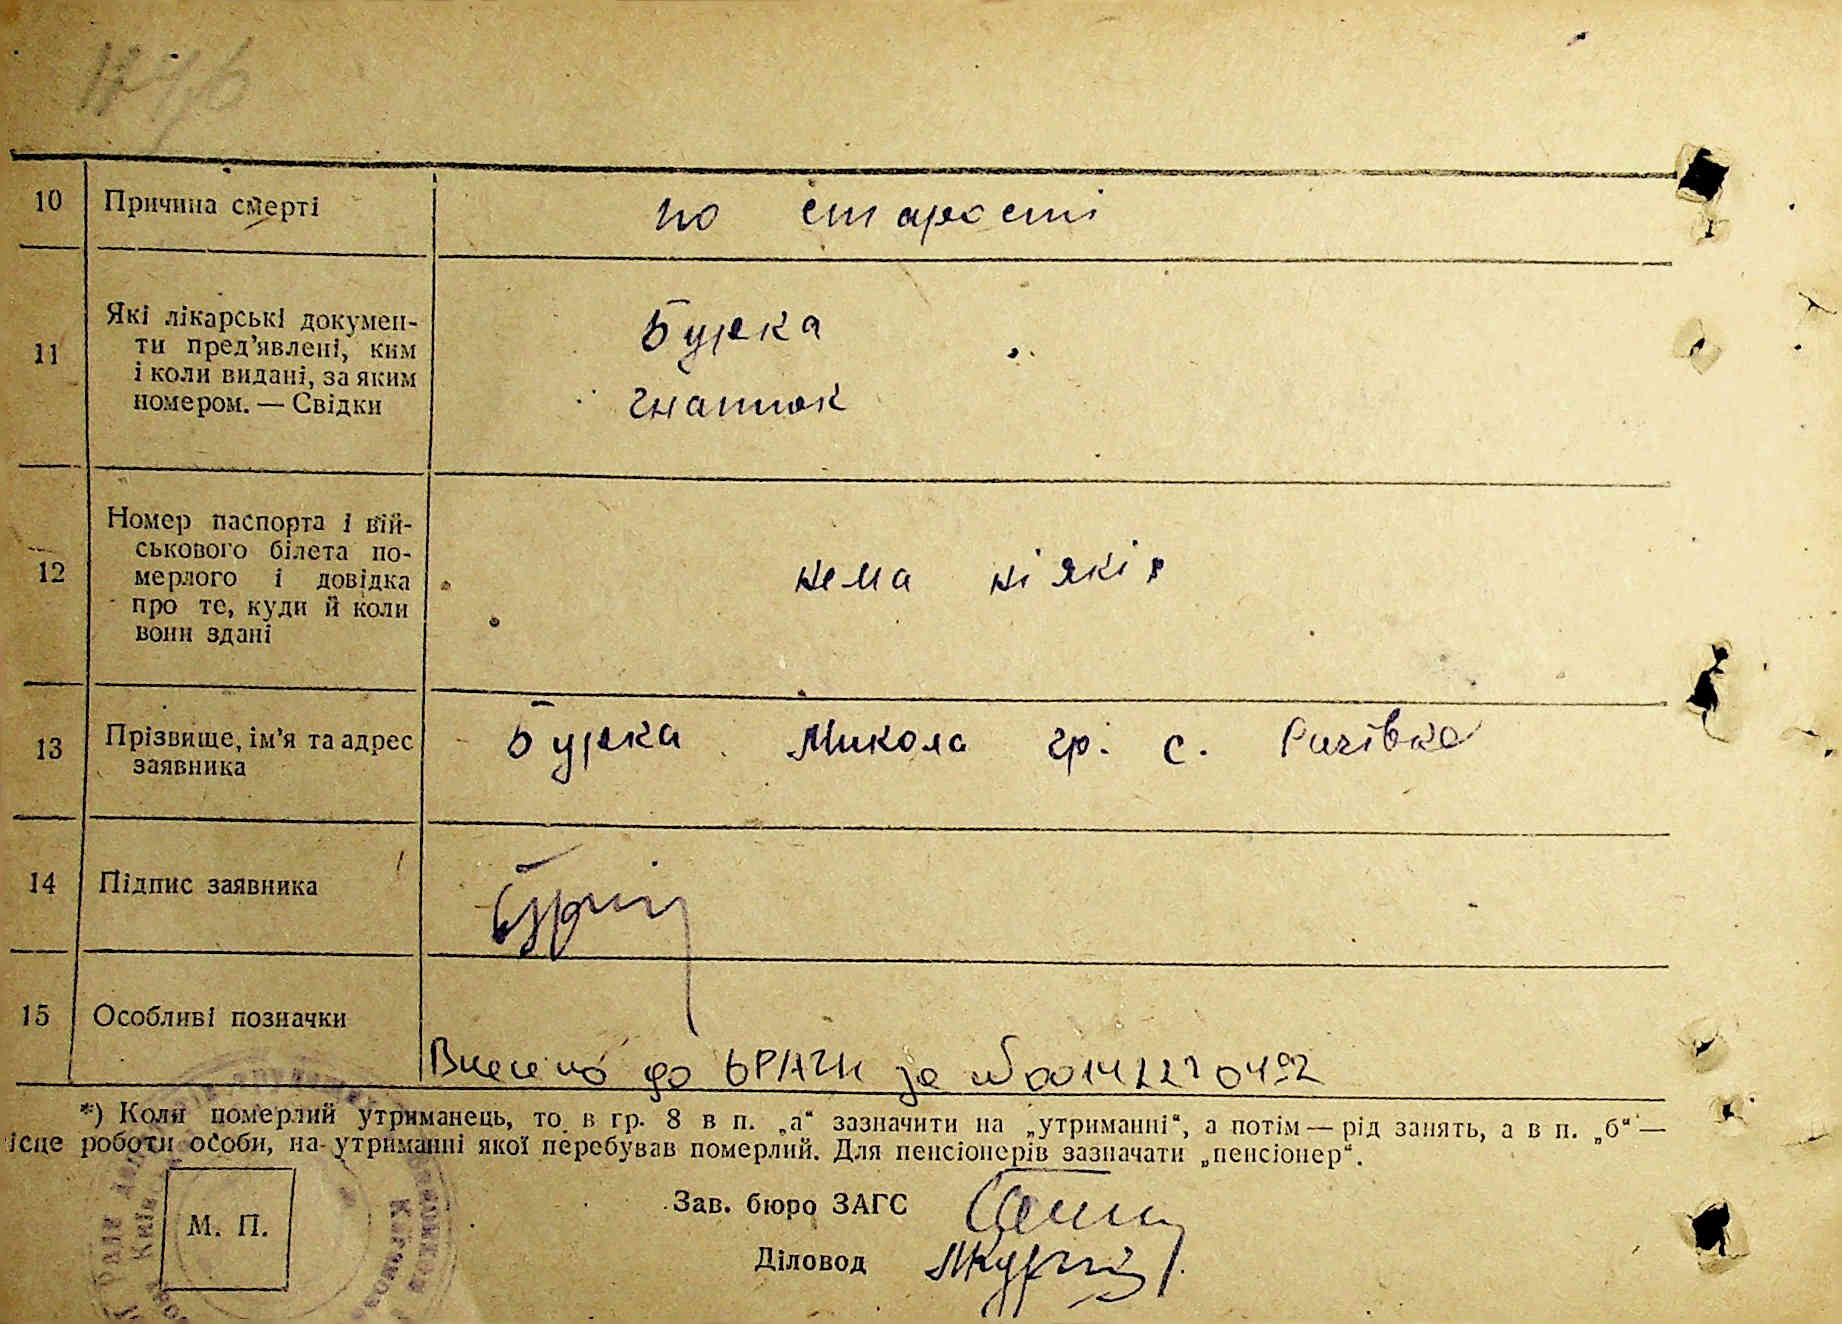 10 Причина смерті по старості
11 Які лікарські докумен-
ти пред'явлені, ким
і коли видані, за яким
номером. — Свідки
Бурка
Гнатюк
12 Номер паспорта і вій-
ськового білета по-
мерлого і довідка
про те, куди й коли
вони здані
нема ніякіх
13 Прізвище, ім'я та адрес
заявника
Бурка Микола гр. с.
14 Підпис заявника
15 Особливі позначки
Внесено до ДРАЦГ за №
*) Коли померлий утриманець, то в гр. 8 в п. „а“ зазначити на „утриманні“, а потім — рід занять, а в п. „б“ —
ісце роботи особи, на утриманні якої перебував померлий. Для пенсіонерів зазначати „пенсіонер“.
Зав. бюро ЗАГС
М. П.
Діловод